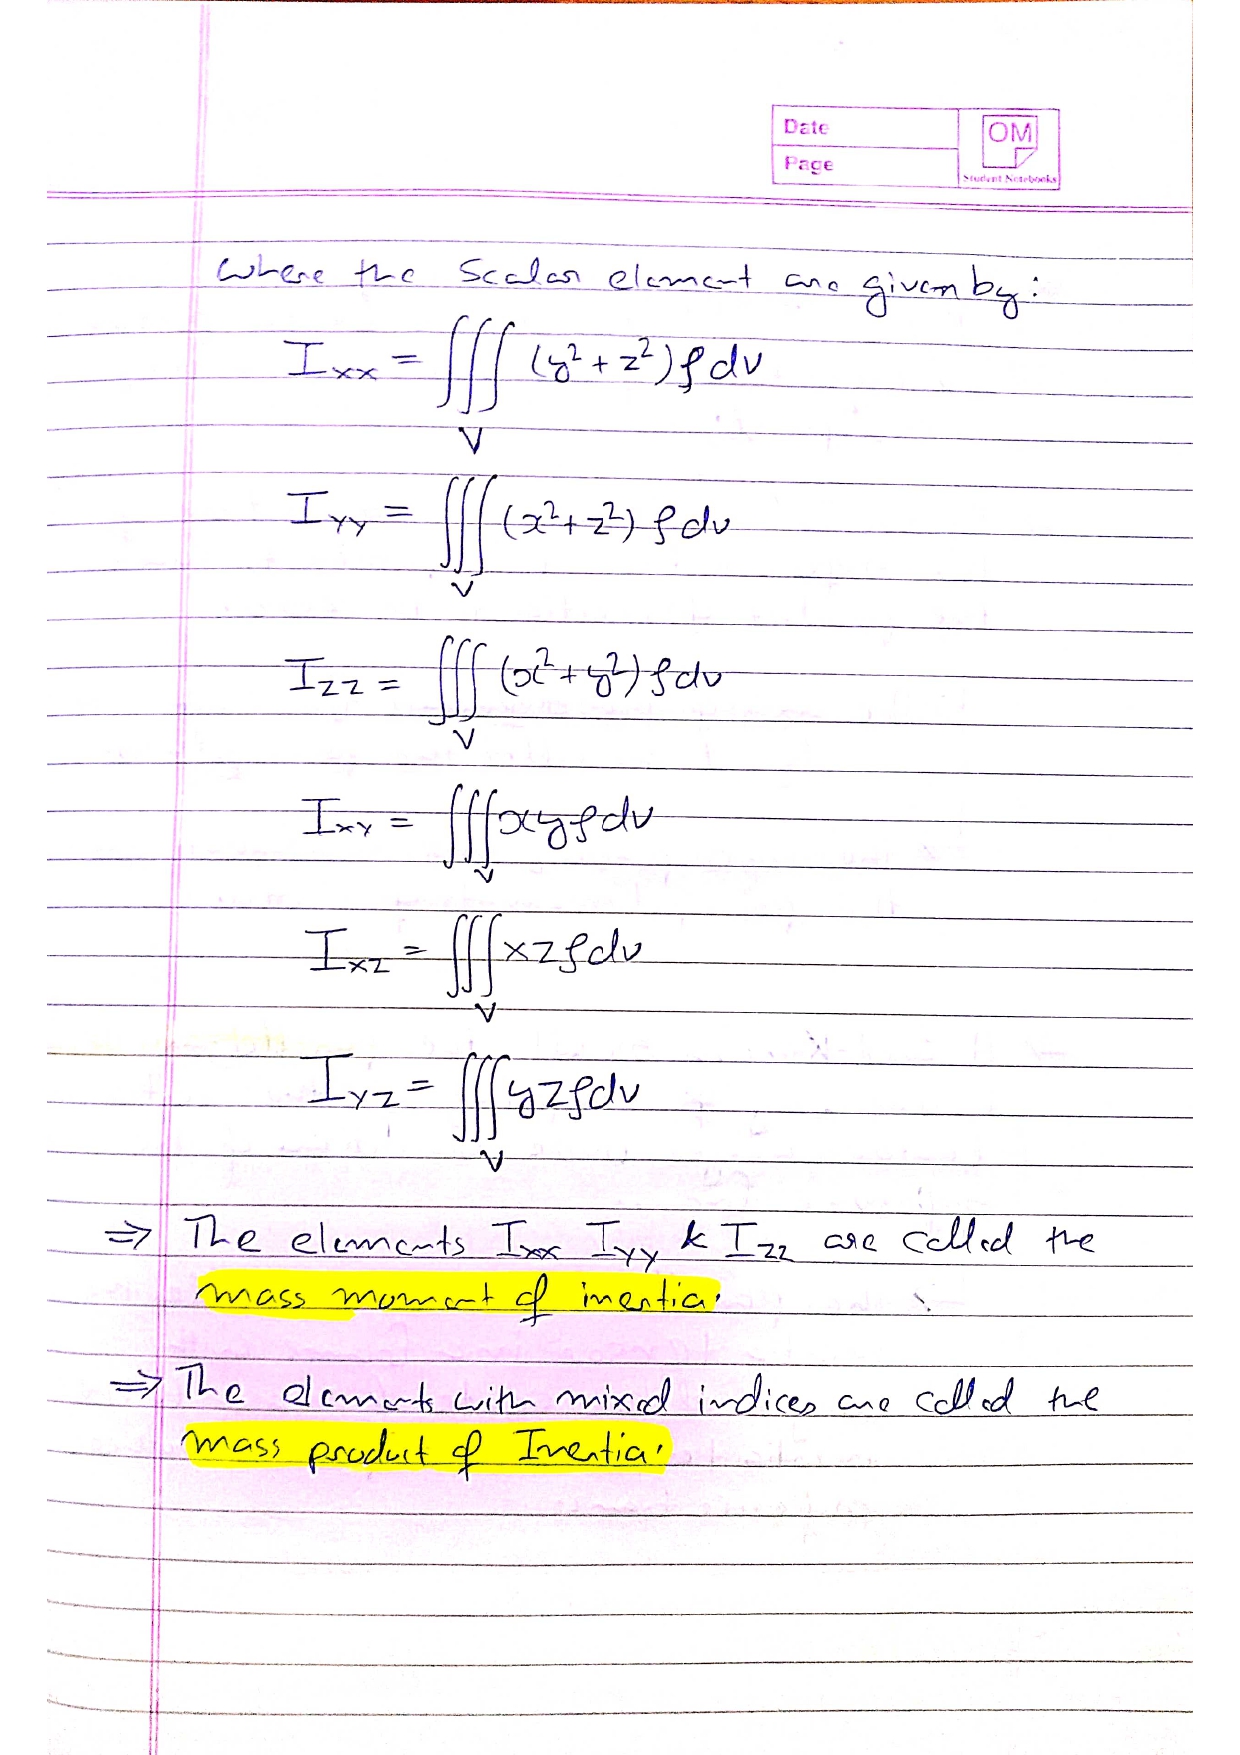 Date
Page
OM
Student Notebooks
where the Scalar element are given by:
Ixx = ∭ (y² + z²) ρ dv
V
Iyy = ∭ (x² + z²) ρ dv
V
Izz = ∭ (x² + y²) ρ dv
V
Ixy = ∭ xy ρ dv
V
Ixz = ∭ xz ρ dv
V
Iyz = ∭ yz ρ dv
V
⇒ The elements Ixx Iyy & Izz are called the
mass moment of inertia.
⇒ The elements with mixed indices are called the
mass product of Inertia.